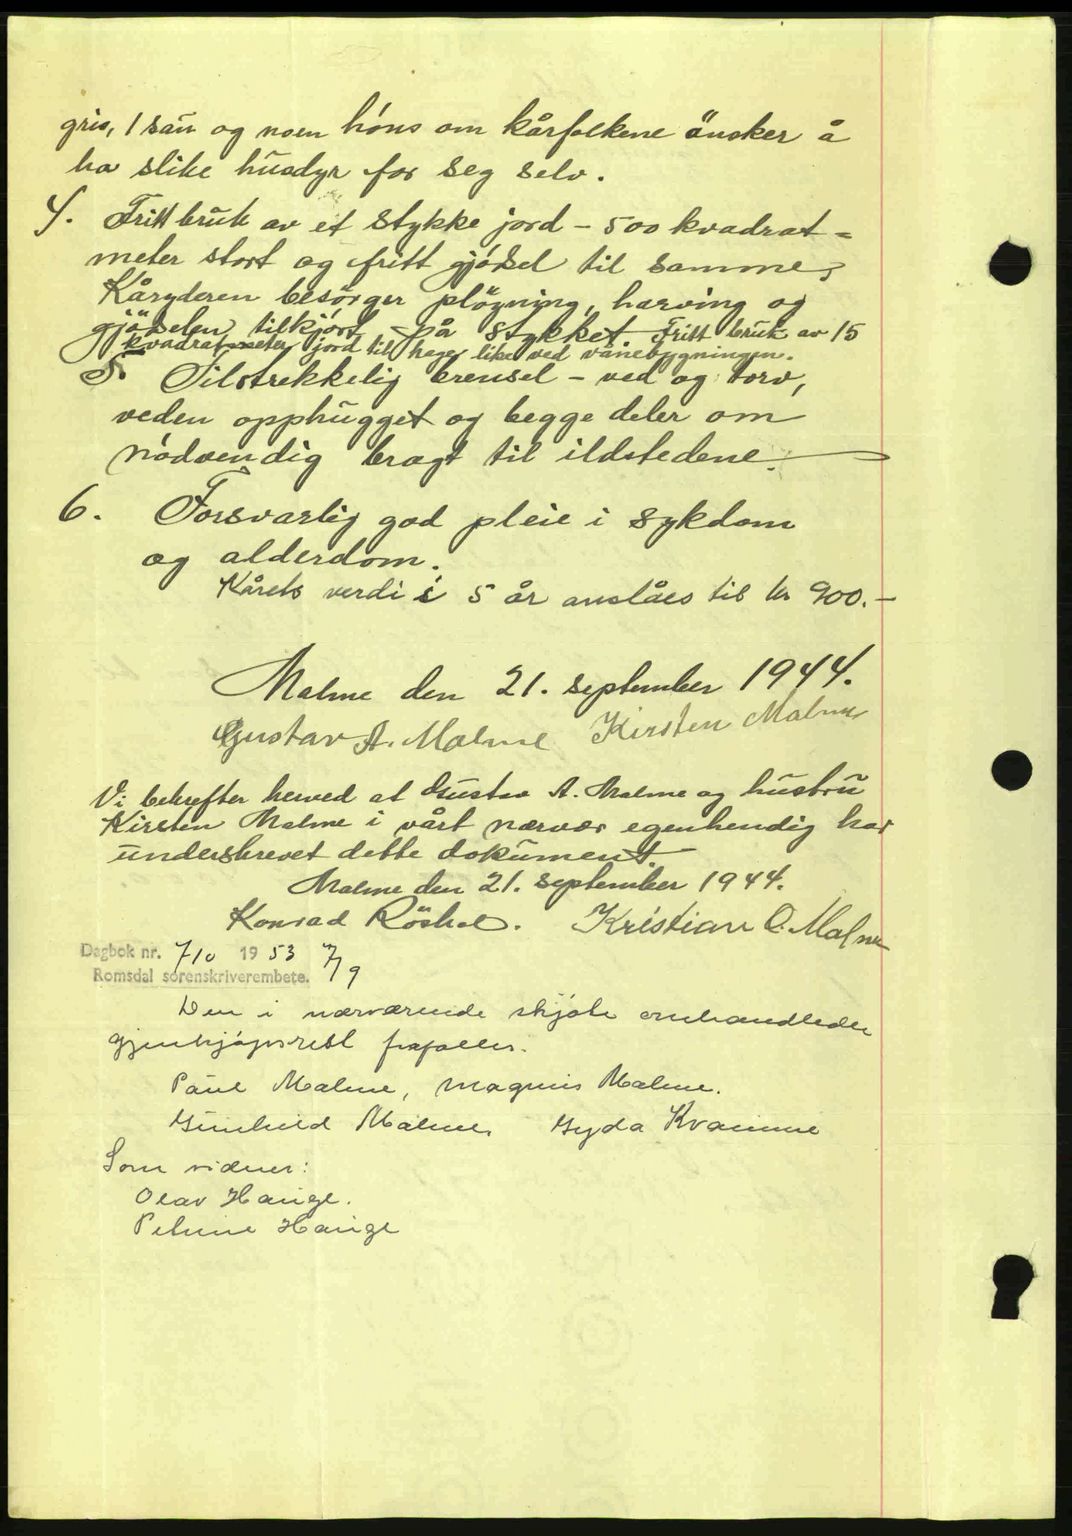 gris, 1 sau og noen höns om kårfolkene önsker å
ha slike husdyr for seg selv.
4. Fritt bruk av et stykke jord - 500 kvadrat=
meter stort og fritt gjödsel til samme,
Kåryderen besörger plöyning, harving og
gjödselen tilkjört på stykket. Fritt bruk av 15
kvadratmeter jord til hage like ved vånebygningen.
5. Tilstrekkelig brensel - ved og torv,
veden opphugget og begge deler om
nödvendig bragt til ildstedene.
6. Forsvarlig god pleie i sykdom
og alderdom.
Kårets verdi i 5 år anslåes til kr 900.-
Malme den 21. september 1944.
Gustav A. Malme Kirsten Malme
Vi bekrefter herved at Gustav A. Malme og hustru
Kirsten Malme i vårt nærvær egenhendig har
underskrevet dette dokument.
Malme den 21. september 1944.
Konrad Röshol. Kristian O. Malme
Dagbok nr. 710 1953 7/9
Romsdal sorenskriverembete.
Den i nærværende skjöte omhandlede
gjenkjöpsrett frafalles.
Paul Malme, Magnus Malme.
Gunhild Malme, Gyda Kvamme
Som vidner:
Olav Hauge.
Petrine Hauge